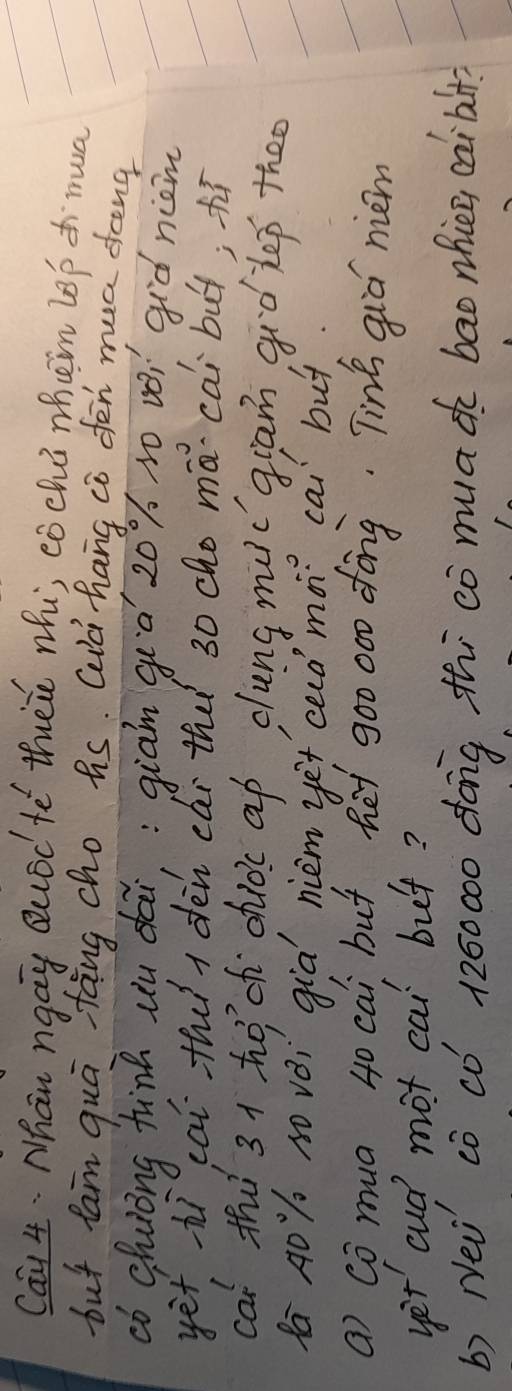 Câu 4. Nhân ngày Quốc tế thiếu nhi, cô chủ nhiệm lớp đi mua
bút làm quà tặng cho hs. Cửa hàng cô đến mua đang
có chương trình ưu đãi : giảm giá 20% so với giá niêm
yết từ cái thứ 1 đến cái thứ 30 cho mỗi cái bút ; từ
cái thứ 31 trở đi được áp dụng mức giảm giá tiếp theo
là 40% so với giá niêm yết của mỗi cái bút.
a) Cô mua 40 cái bút hết 900 000 đồng. Tính giá niêm
yết của một cái bút ?
b) Nếu cô có 1260 000 đồng thì cô mua đc bao nhiêu cái bút?